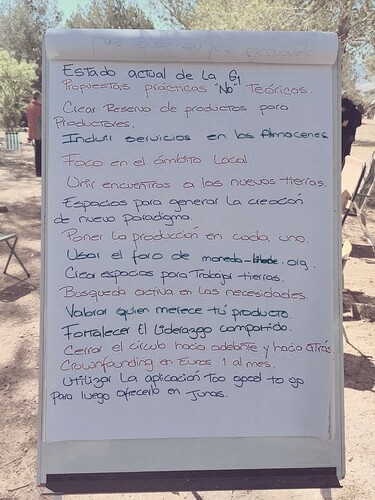 Estado actual de la G1
Propuestas prácticas "No" Teóricas.
Crear Reserva de productos para
Productores.
Incluir servicios en los Almacenes
Foco en el ámbito Local.
Unir encuentros a las nuevas tierras.
Espacios para generar la creación
de nuevo paradigma.
Poner la producción en cada uno.
Usar el foro de moneda-libre.org.
Crear espacios para Trabajar tierras.
Busqueda activa en las necesidades.
Valorar quien merece tú producto.
Fortalecer El Liderazgo compartido.
Cerrar el círculo hacia adelante y hacia atrás
Crownfunding en Euros 1 al mes.
Utilizar la aplicación Too good to go
Para luego ofrecerlo en Junas.